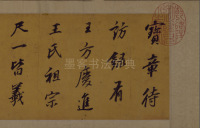 寶章待
訪錄有
王方慶進
王氏祖宗
尺一皆羲
墨客书法字典